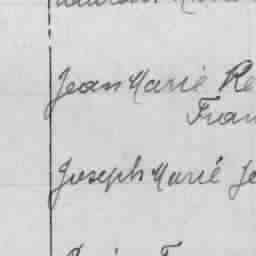 Jean Marie Re
Fran
Joseph Marie Je